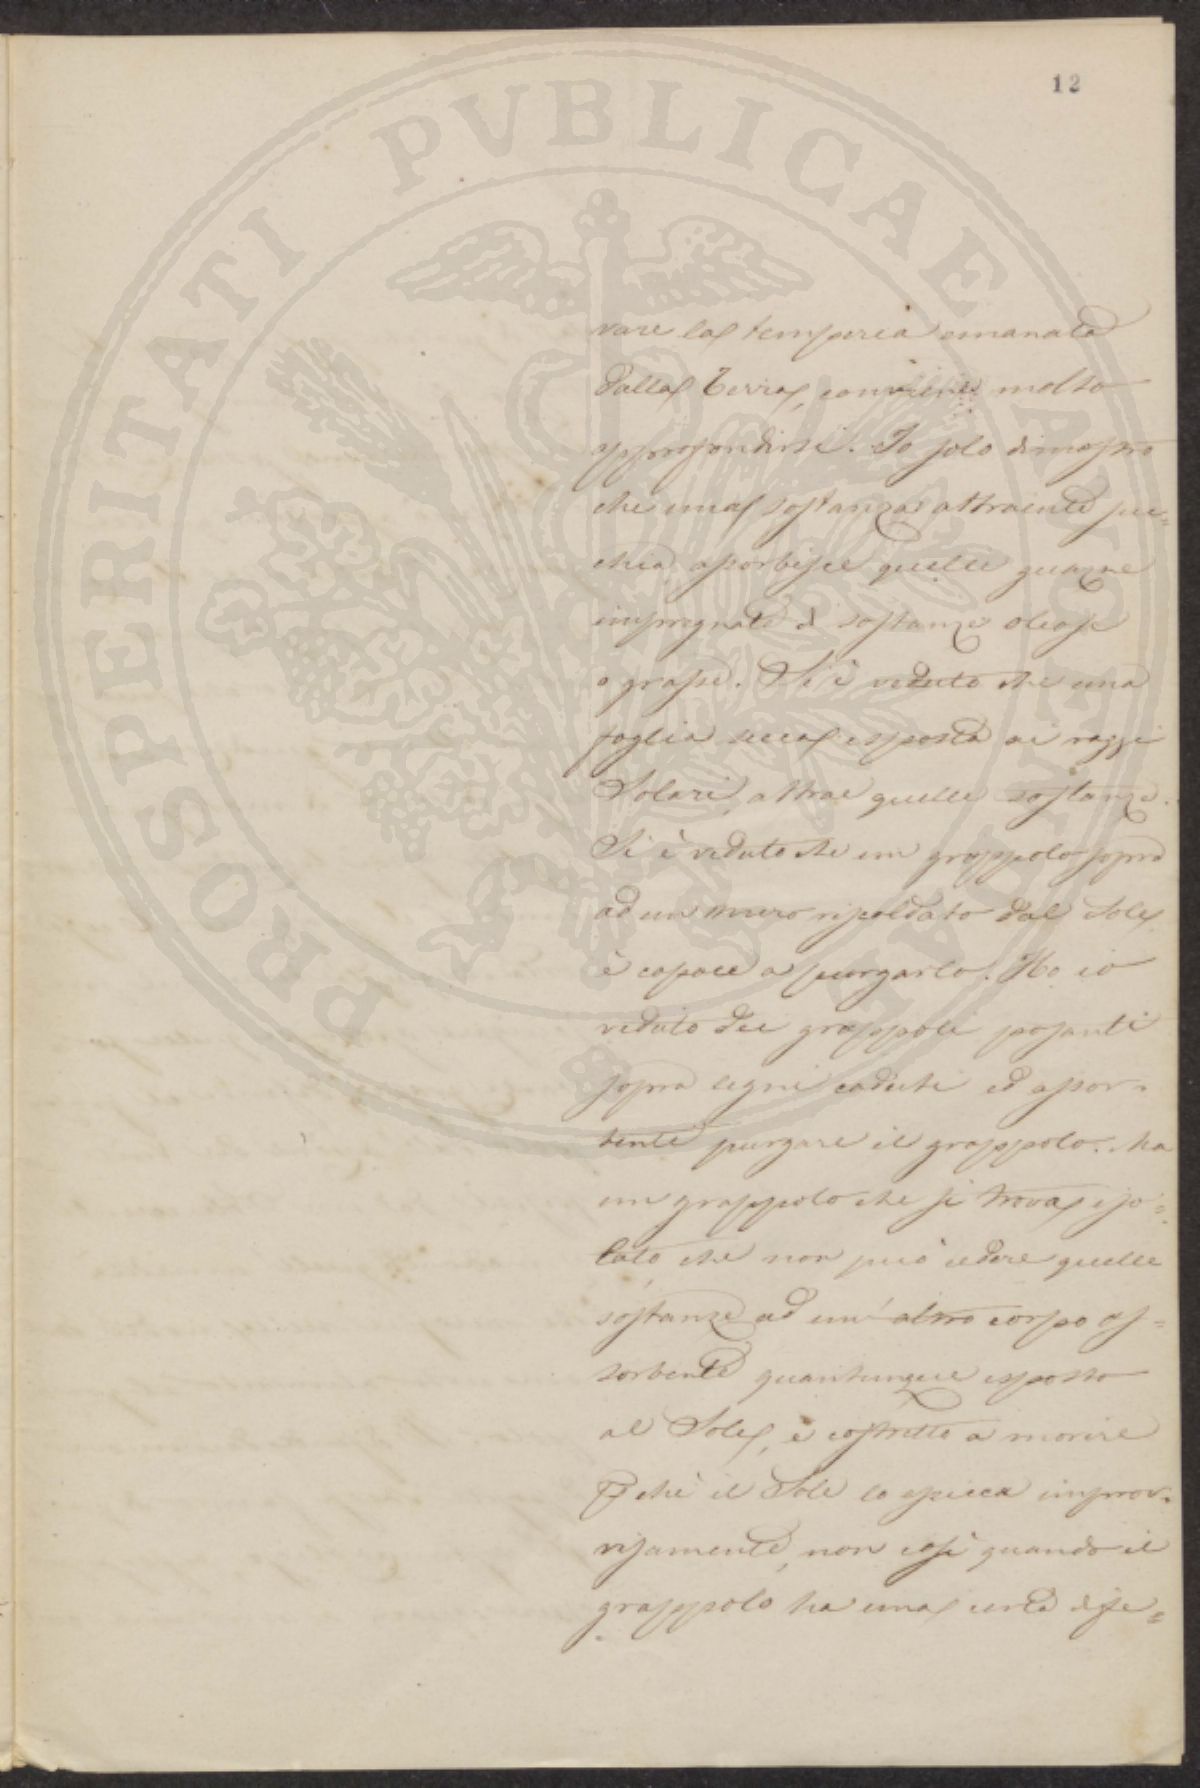 12
PROSPERITATI PVBLICAE AVGENDAE
vare la temperia emanata
dalla Terra, conviene molto
approfondirsi. Io solo dimostro
che una sostanza attraente sec=
chia, assorbisce quelle guazze
impregnate di sostanze oleose
o grasse. Si è veduto che una
foglia secca esposta ai raggi
Solari, attrae quelle sostanze.
Si è veduto che un grappolo sopra
ad un muro riscaldato dal Sole
è capace a purgarlo. Ho io
veduto dei grappoli posanti
sopra legni caduti ed assor=
benti purgare il grappolo. Ma
un grappolo che si trova iso=
lato che non può cedere quelle
sostanze ad un'altro corpo as=
sorbente quantunque esposto
al Sole, è costretto a morire
perchè il Sole lo spicca improv=
visamente, non così quando il
grappolo ha una certa dife=